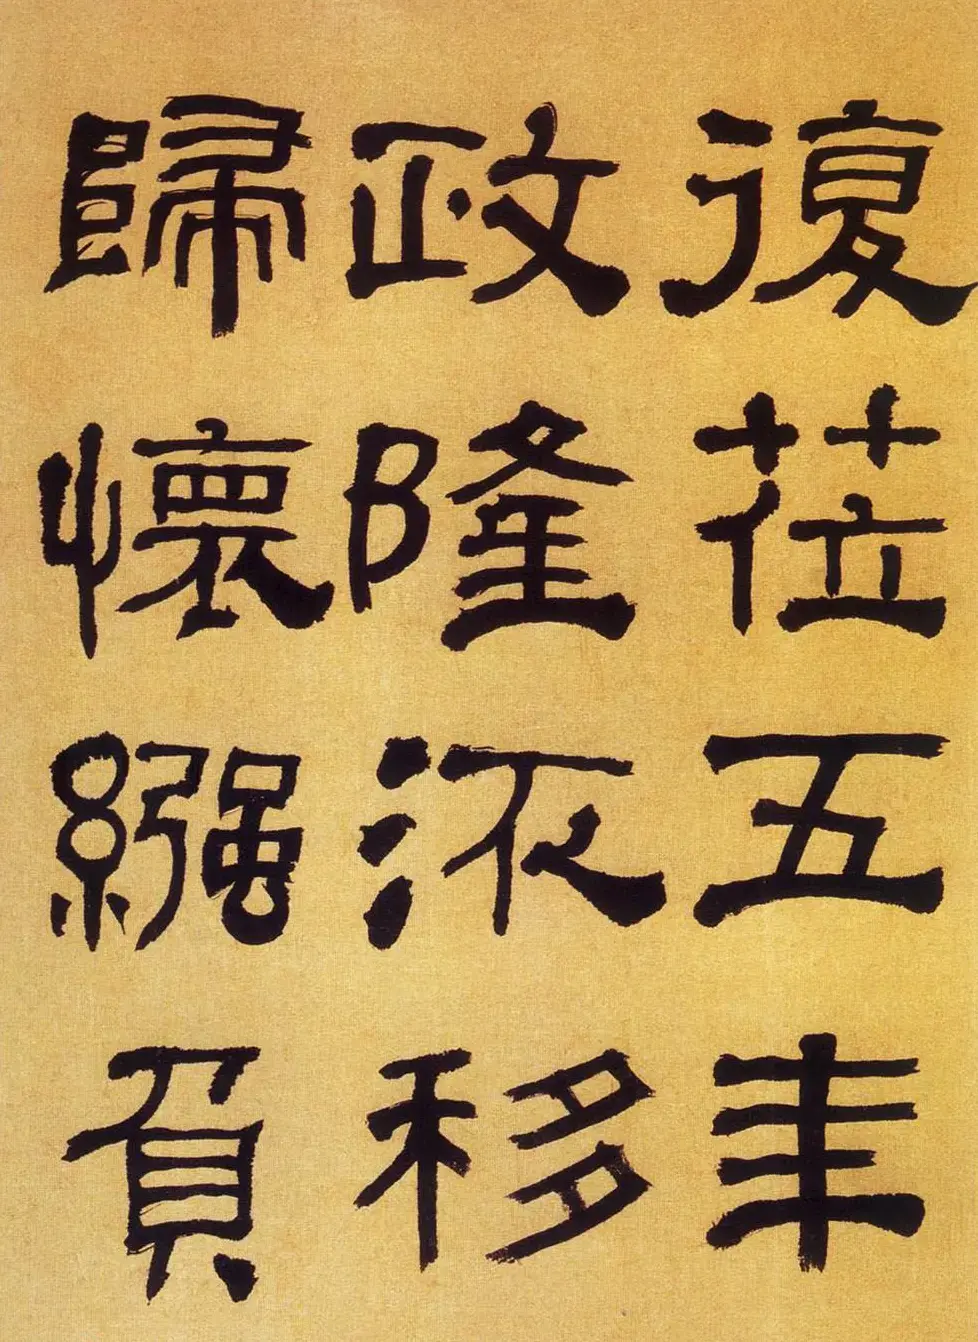 復莅五年
政隆移
歸懷繈負